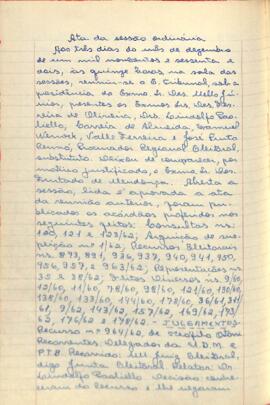 Ata da sessão ordinária
Aos três dias do mês de dezembro
de um mil novecentos e sessenta e
dois, às quinze horas, na sala das
sessões, reuniu-se o E. Tribunal, sob a
presidência do Exmo. Sr. Des. Mello Jú-
nior, presentes os Exmos. Srs. Des.
de Oliveira, Drs. Lindolfo Pao-
liello, Correia de Almeida,
Werneck, Valle Ferreira e José Pinto
Renno, Procurador Regional Eleitoral,
substituto. Deixou de comparecer, por
motivo justificado, o Exmo. Sr. Des.
Furtado de Mendonça. Aberta a
sessão, lida e aprovada a ata
da reunião anterior, foram pu-
blicados os acórdãos proferidos nos
seguintes feitos: Consultas ns.
120, 121 e 123/62; Arguição de sus-
peição nº 1/62; Recursos Eleitorais
ns. 873, 891, 936, 937, 940, 941, 950,
956, 957 e 963/62; Representações ns
35 e 38/62; Feitos Diversos ns. 9/60,
12/60, 11/60, 78/60, 98/60, 121/60, 130/60
138/60, 133/60, 144/60, 178/60, 36/61, 31/
61, 9/62, 143/62, 157/62, 169/62, 173/
62, 176/62 e 178/62. - JULGAMENTOS:
Recurso nº 964/62, de Teófilo Otoni
Recorrentes: Delegados da U.D.N. e
P.T.B. Recorrido: MM. Juiz Eleitoral,
digo Junta Eleitoral Relator: Dr.
Lindolfo Paoliello. Decisão: conhe-
ceram do recurso e lhe negaram